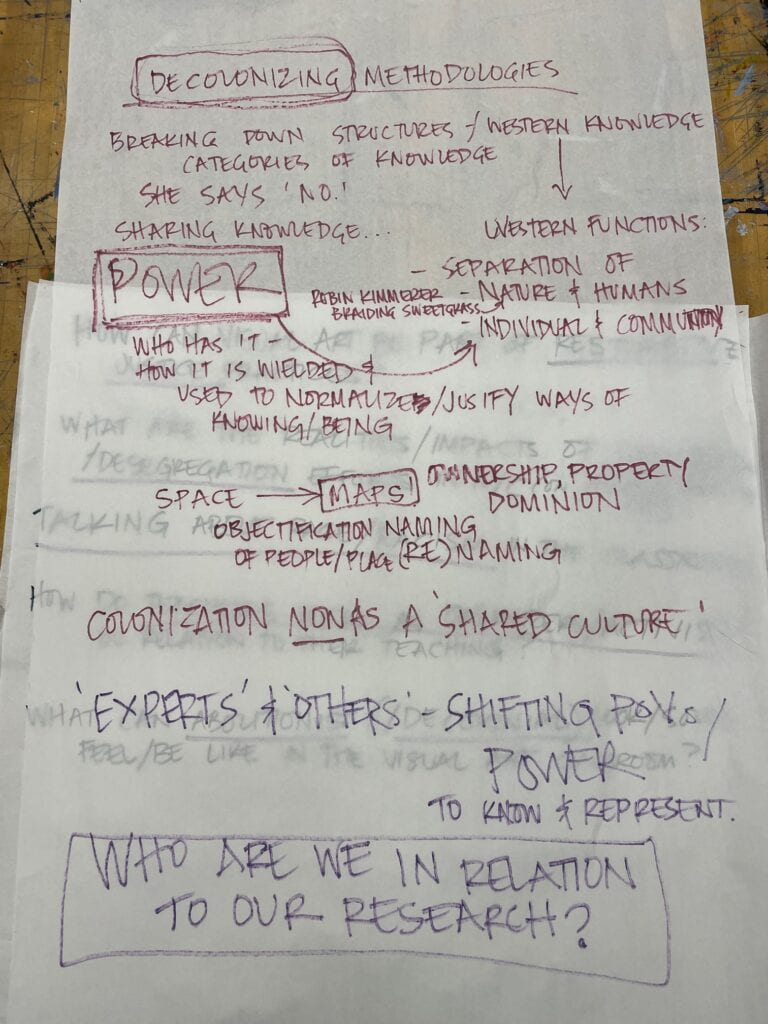 DECOLONIZING METHODOLOGIES
BREAKING DOWN STRUCTURES / WESTERN KNOWLEDGE
CATEGORIES OF KNOWLEDGE
SHE SAYS 'NO.'
SHARING KNOWLEDGE...
WESTERN FUNCTIONS:
- SEPARATION OF
- NATURE & HUMANS
ROBIN KIMMERER
BRAIDING SWEETGRASS
- INDIVIDUAL & COMMUNITY
POWER
WHO HAS IT -
HOW IT IS WIELDED &
USED TO NORMALIZE/JUSIFY WAYS OF
KNOWING/BEING
SPACE → MAPS
OWNERSHIP, PROPERTY
DOMINION
OBJECTIFICATION NAMING
OF PEOPLE/PLACE (RE)NAMING
COLONIZATION NON AS A 'SHARED CULTURE'
'EXPERTS' & 'OTHERS' - SHIFTING POVs /
POWER
TO KNOW & REPRESENT.
WHO ARE WE IN RELATION
TO OUR RESEARCH?
WHAT ARE THE REALITIES/IMPACTS OF
/DESEGREGATION
TALKING
HOW DO
IN RELATION TO THEIR TEACHING?
WHAT CAN
FEEL/BE LIKE IN THE VISUAL